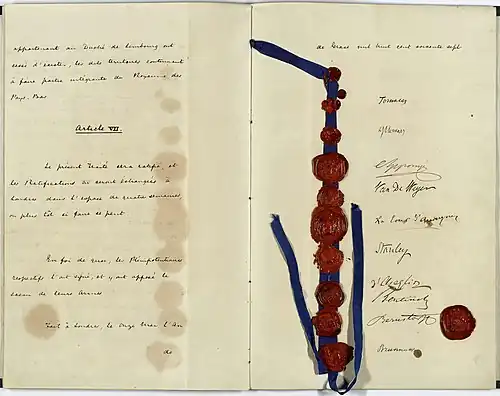 appartenant au Duché de Limbourg ont
cessé d'exister, les dits territoires continuent
à faire partie intégrante du Royaume des
Pays-Bas
Article VII.
Le présent Traité sera ratifié, et
les Ratifications en seront échangées à
Londres dans l'espace de quatre semaines,
ou plus tôt si faire se peut.
En foi de quoi, les Plénipotentiaires
respectifs l'ont signé, et y ont apposé le
sceau de leurs Armes
Fait à Londres, le onze Mai l'An
de
de Grace mil huit cent soixante sept
Tornaco
Van De Weyer
La Tour d'Auvergne
Stanley
d'Azeglio
Bentinck
Bernstorff
Brunnow